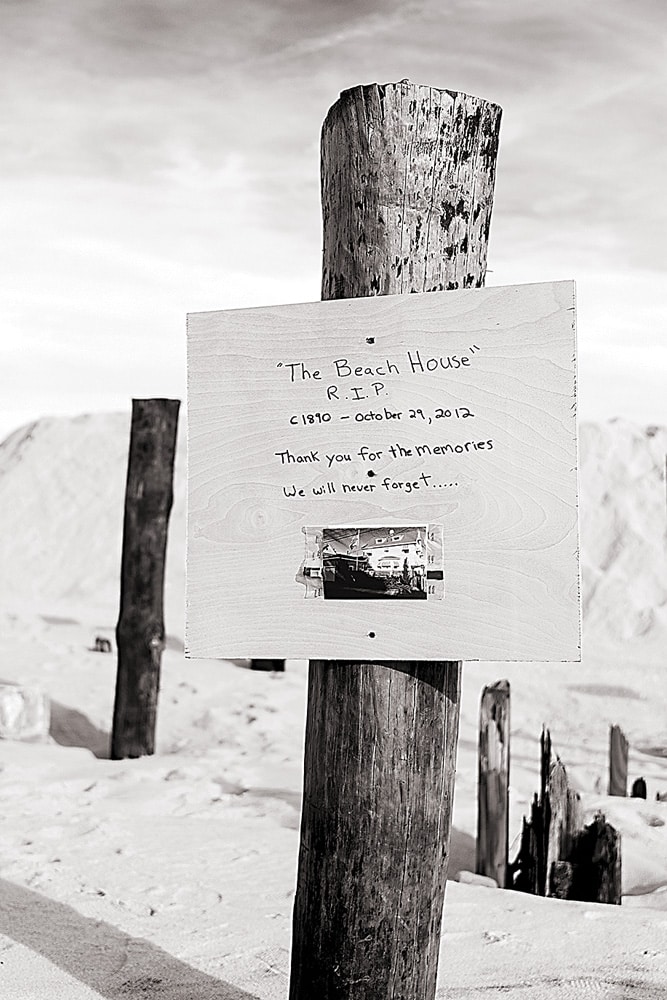 "The Beach House"
R.I.P.
c1890 - October 29, 2012
Thank you for the memories
We will never forget.....